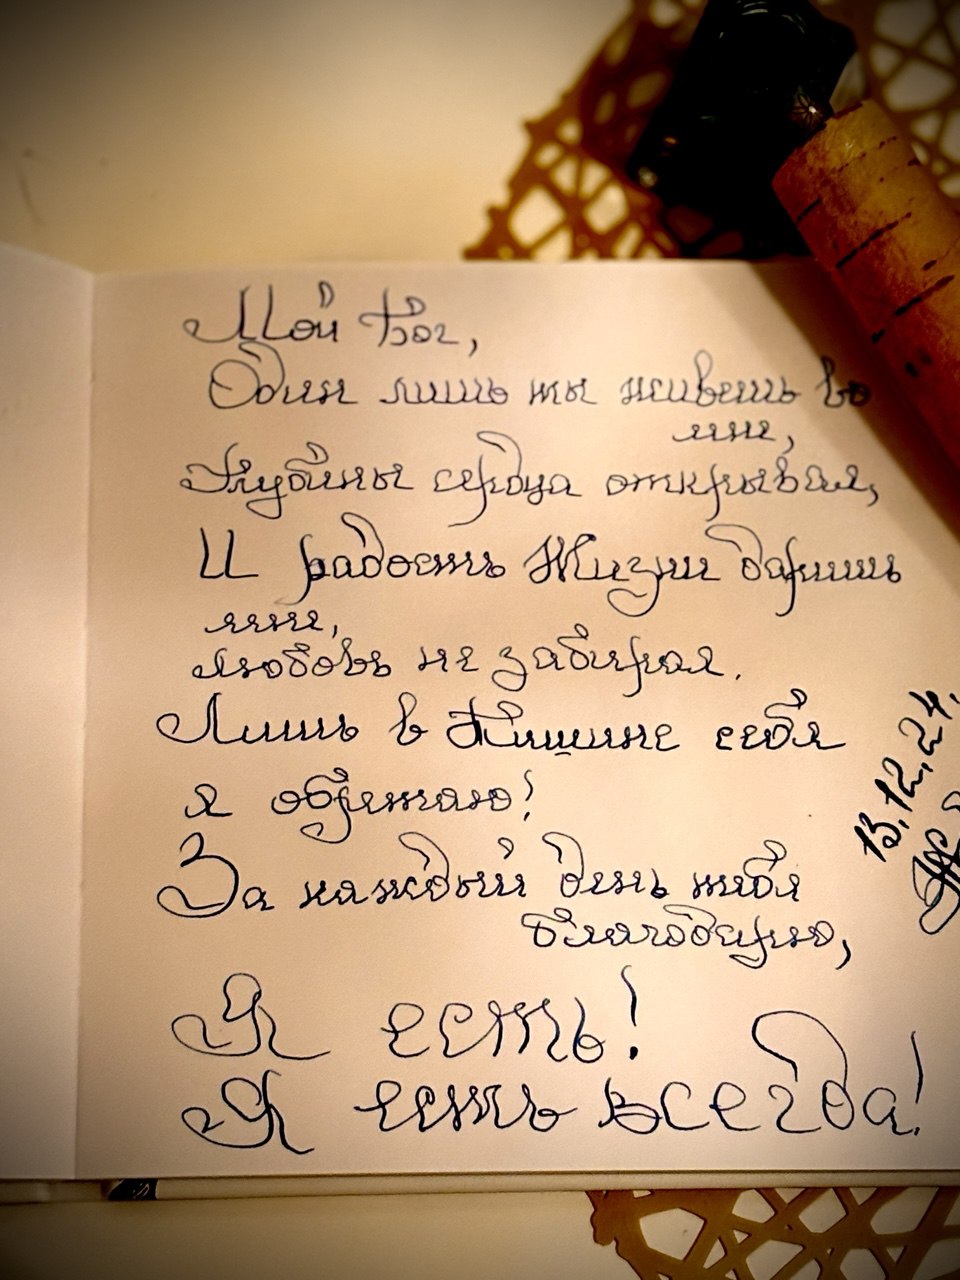 Мой Бог,
Один лишь ты живешь во
мне,
Глубины сердца открывая,
И радость Жизни даришь
мне,
любовь не забирая.
Лишь в Тишине себя
я обретаю!
За каждый день тебя
благодарю,
Я есть!
Я есть всегда!
13.12.24.